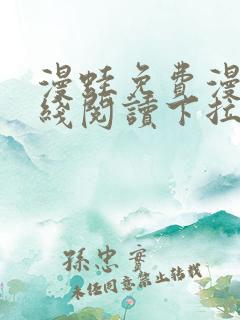 漫蛙免费漫
线阅读下拉
孙忠实
未经同意禁止转载